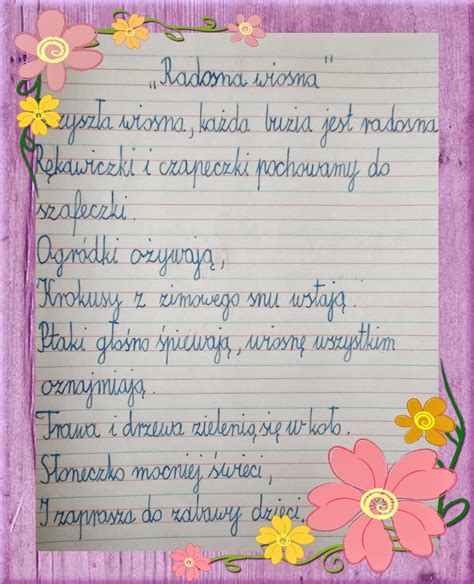 „Radosna wiosna"
zyszła wiosna, każda buzia jest radosna
Rękawiczki i czapeczki pochowamy do
szafeczki.
Ogródki ożywają,
Krokusy z zimowego snu wstają.
Ptaki głośno śpiewają, wiosnę wszystkim
oznajmiają.
Trawa i drzewa zielenią się w koło.
Słoneczko mocniej świeci,
I zaprasza do zabawy dzieci.